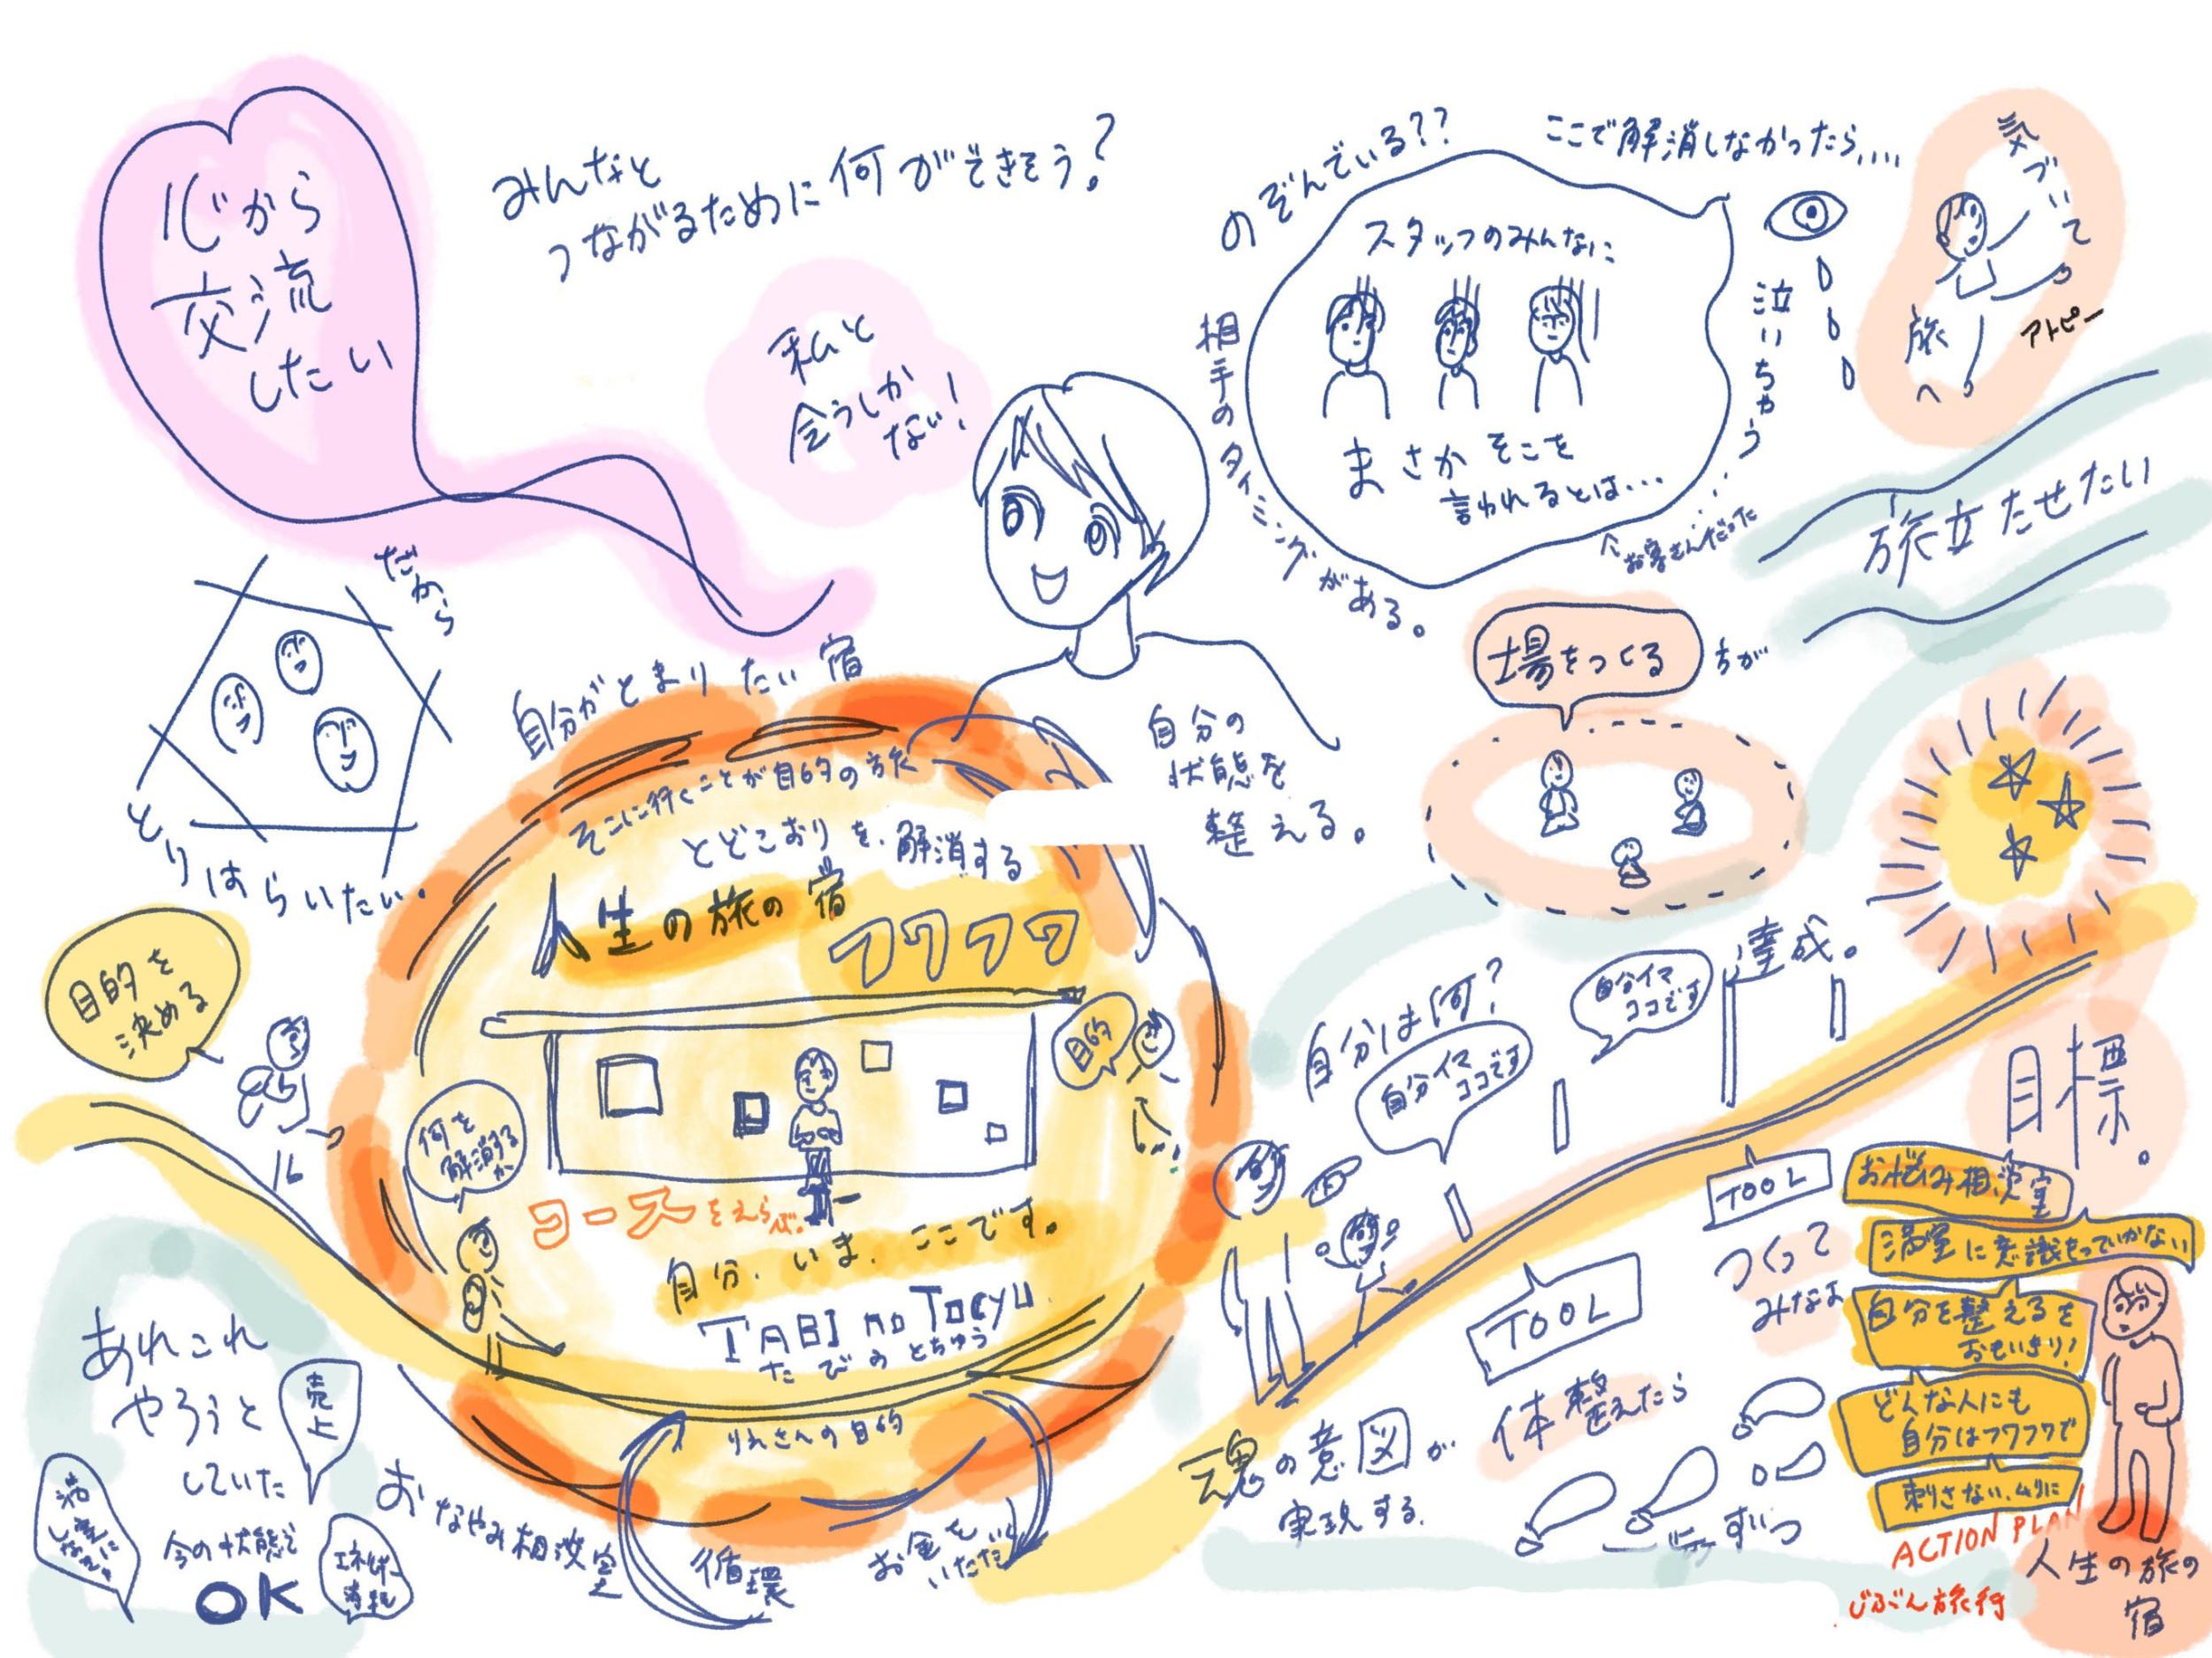 心から
交流
したい
みんなと
つながるために何ができそう?
私と
会うしか
ない!
のぞんでいる??
相手のタイミングがある。
スタッフのみんなに
まさかそこを
言われるとは…
ここで解消しなかったら....
泣いちゃう…
お客さんだった
気づいて
旅へ
アトピー
旅立たせたい
だから
とりはらいたい.
自分がとまりたい宿
そこに行くことが目的の旅
とどこおりを解消する
人生の旅の宿
フワフワ
自分の
状態を
整える。
場をつくる
目的を
決める
何を
解消するか
目的
コースをえらぶ。
自分.いま.ここです。
TABI no Tocyu
たびのとちゅう
りえさんの目的
循環
お金を
おなやみ相談室
あれこれ
やろうと
していた
売上
今の状態で
OK
自分は何?
自分イマ
ココです
自分イマ
ココです
達成。
目標。
TOOL
TOOL
つくって
みなよ
体整えたら
魂の意図が
実現する.
お悩み相談室
満室に意識もっていかない
自分を整えるを
おもいきり!
どんな人にも
自分はフワフワで
刺さない.ムリに
ACTION PLAN
人生の旅の
宿